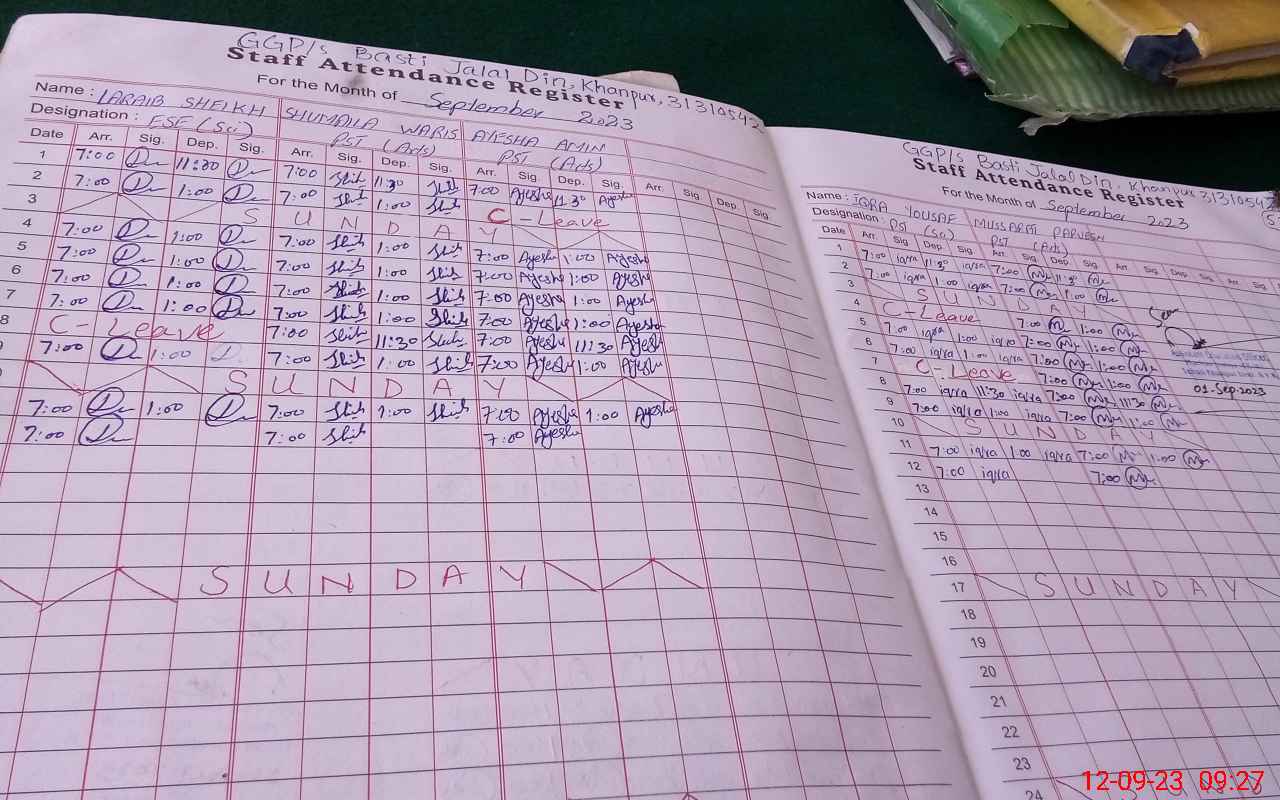 GGP/s Basti Jalal Din, Khanpur, 31310542
Staff Attendance Register
For the Month of September 2023
Name : LARAIB SHEIKH SHUMAILA WARIS AYESHA AMIN
Designation : ESE (Sci) PST (Arts) PST (Arts)
Date Arr. Sig. Dep. Sig. Arr. Sig. Dep. Sig. Arr. Sig. Dep. Sig. Arr. Sig. Dep. Sig.
1 7:00 11:30 7:00 11:30 7:00 Ayesha 11:30 Ayesha
2 7:00 1:00 7:00 1:00 C-Leave
3 SUNDAY
4 7:00 1:00 7:00 1:00 7:00 Ayesha 1:00 Ayesha
5 7:00 1:00 7:00 1:00 7:00 Ayesha 1:00 Ayesha
6 7:00 1:00 7:00 1:00 7:00 Ayesha 1:00 Ayesha
7 7:00 1:00 7:00 1:00 7:00 Ayesha 1:00 Ayesha
8 C-Leave 7:00 11:30 7:00 Ayesha 11:30 Ayesha
7:00 1:00 7:00 1:00 7:00 Ayesha 1:00 Ayesha
SUNDAY
7:00 1:00 7:00 1:00 7:00 Ayesha 1:00 Ayesha
7:00 7:00 7:00 Ayesha
SUNDAY
GGP/s Basti Jalal Din, Khanpur 3131054
Staff Attendance Register
For the Month of September 2023
Name : IQRA YOUSAF MUSSARAT PARVEEN
Designation : PST (Sci) PST (Arts)
Date Arr. Sig. Dep. Sig. Arr. Sig. Dep. Sig. Arr. Sig. Dep. Sig. Arr. Sig.
1 7:00 iqra 11:30 iqra 7:00 11:30
2 7:00 iqra 1:00 iqra 7:00 1:00
3 SUNDAY
4 C-Leave 7:00 1:00
5 7:00 iqra 1:00 iqra 7:00 1:00
6 7:00 iqra 1:00 iqra 7:00 1:00
7 C-Leave 7:00 1:00
8 7:00 iqra 11:30 iqra 7:00 11:30
9 7:00 iqra 1:00 iqra 7:00 1:00
10 SUNDAY
11 7:00 iqra 1:00 iqra 7:00 1:00
12 7:00 iqra 7:00
13
14
15
16
17 SUNDAY
18
19
20
21
22
23
24
02-Sep-2023
12-09-23 09:27